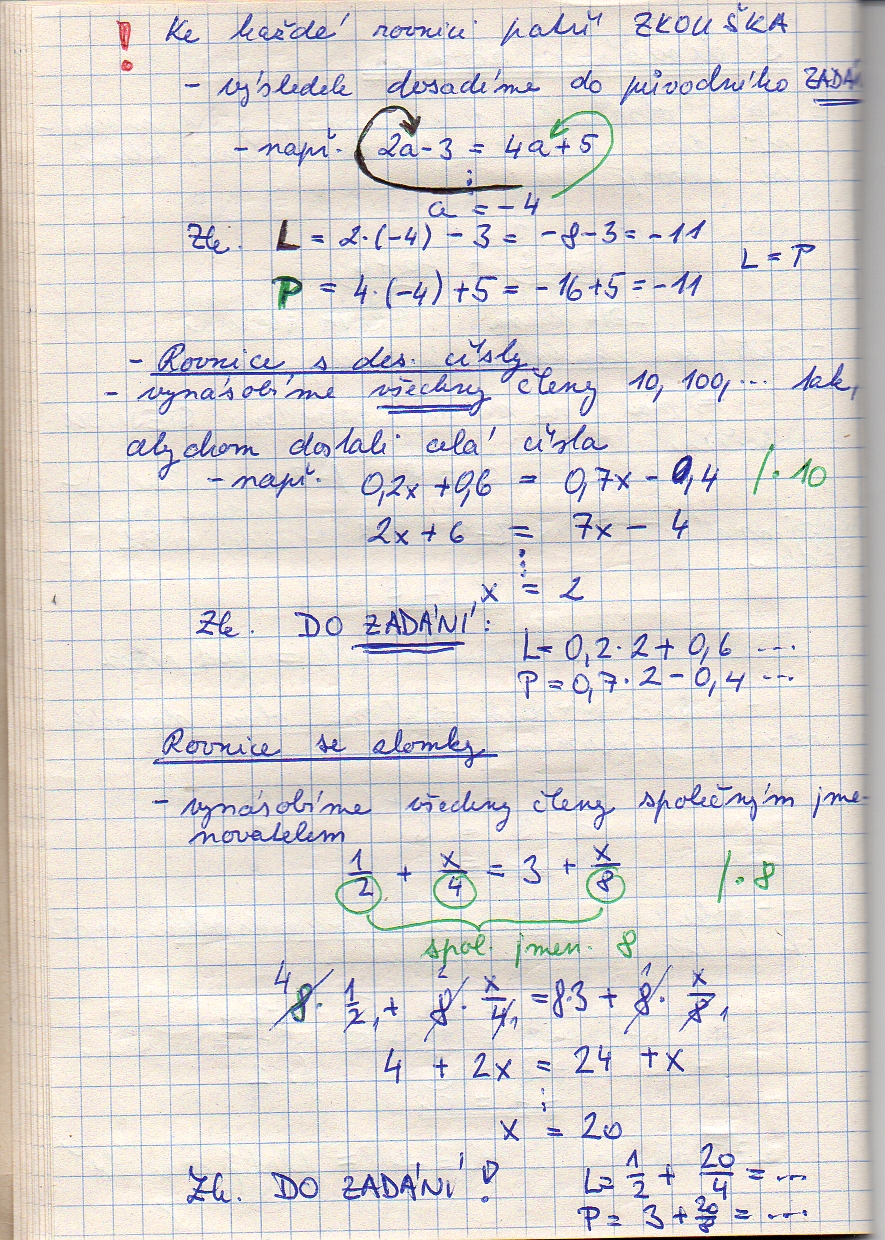 ! Ke každé rovnici patří ZKOUŠKA
- výsledek dosadíme do původního ZADÁ
- např. 2a - 3 = 4a + 5
a = -4
Zk. L = 2·(-4) - 3 = -8 - 3 = -11
L = P
P = 4·(-4) + 5 = -16 + 5 = -11
- Rovnice s des. čísly
- vynásobíme všechny členy 10, 100, ... tak,
abychom dostali celá čísla
- např. 0,2x + 0,6 = 0,7x - 0,4 /·10
2x + 6 = 7x - 4
x = 2
Zk. DO ZADÁNÍ:
L = 0,2·2 + 0,6 ...
P = 0,7·2 - 0,4 ...
Rovnice se zlomky
- vynásobíme všechny členy společným jme-
novatelem
1/2 + x/4 = 3 + x/8 /·8
spol. jmen. 8
4 8 · 1/2 1 + 2 8 · x/4 1 = 8·3 + 1 8 · x/8 1
4 + 2x = 24 + x
x = 20
Zk. DO ZADÁNÍ!
L = 1/2 + 20/4 = ...
P = 3 + 20/8 = ...